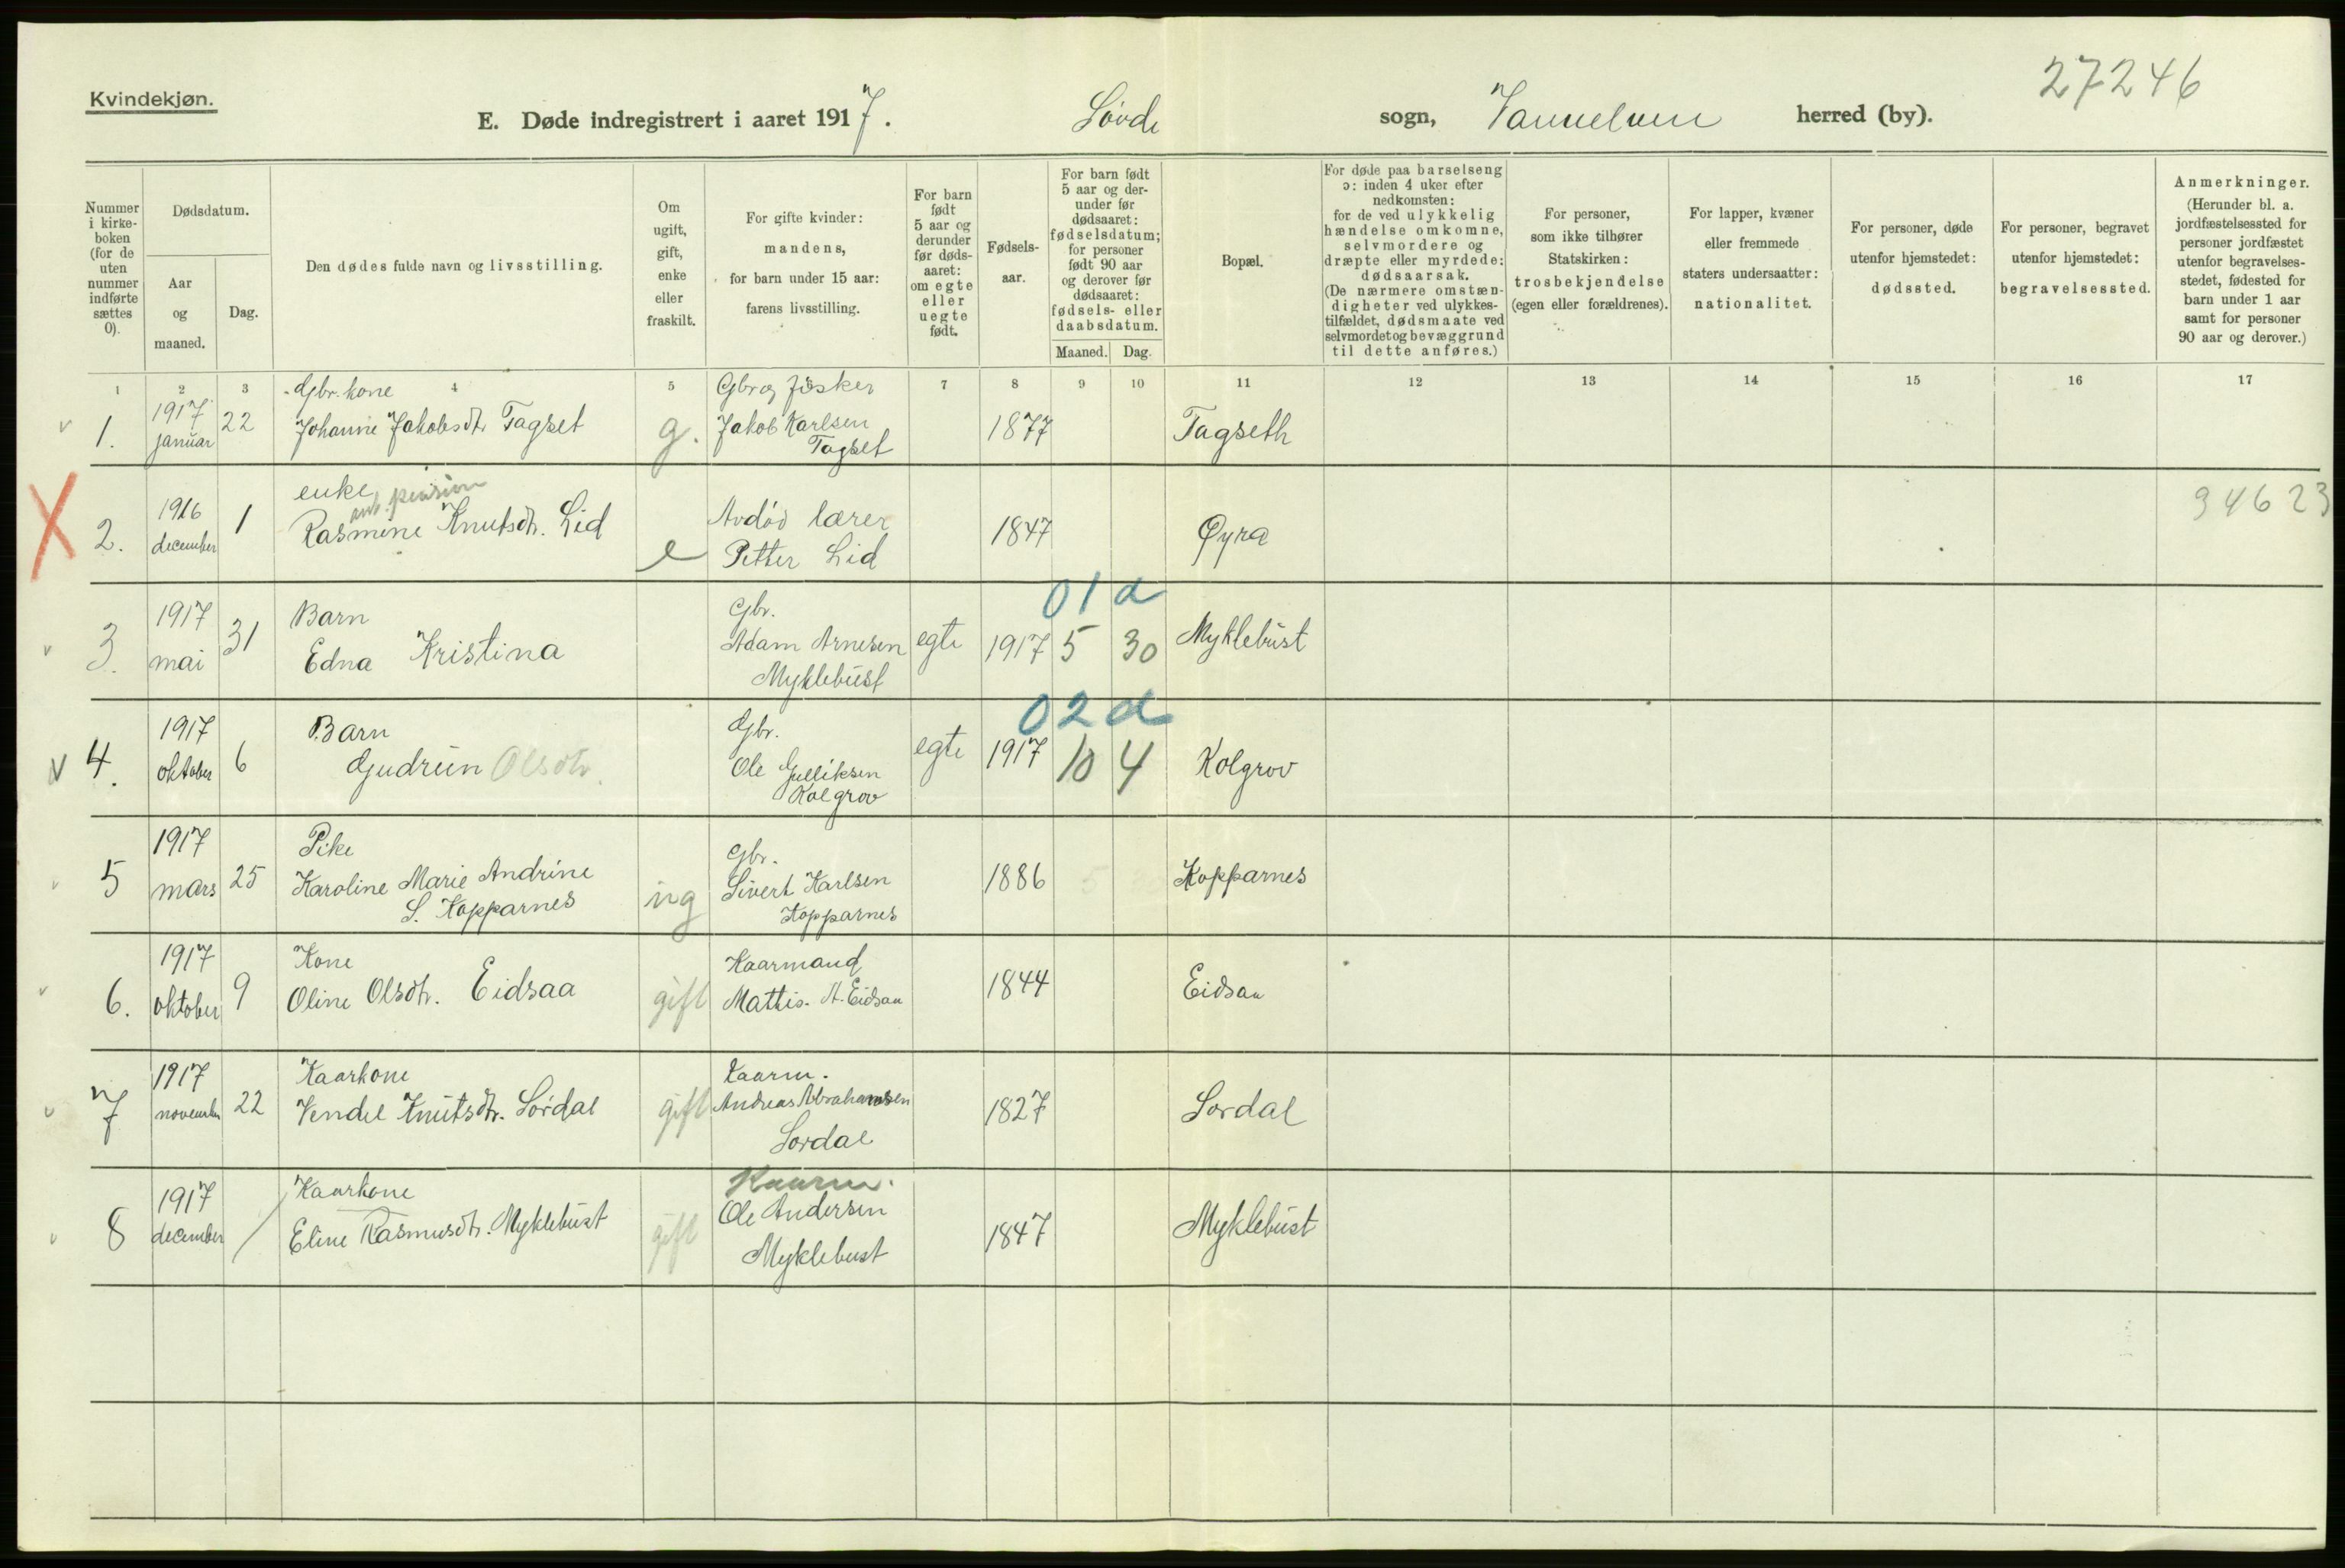 Kvindekjøn.
27246
E. Døde indregistrert i aaret 1917. Søvde sogn, Vannelven herred (by).
Nummer i kirke-boken (for de uten nummer indførte sættes 0).
Dødsdatum.
Aar og maaned.
Dag.
Den dødes fulde navn og livsstilling.
Om ugift, gift, enke eller fraskilt.
For gifte kvinder: mandens, for barn under 15 aar: farens livsstilling.
For barn født 5 aar og derunder før døds-aaret: om egte eller uegte født.
Fødsels-aar.
For barn født 5 aar og der-under før dødsaaret: fødselsdatum; for personer født 90 aar og derover før dødsaaret: fødsels- eller daabsdatum.
Maaned. Dag.
Bopæl.
For døde paa barselseng ɔ: inden 4 uker efter nedkomsten: for de ved ulykkelig hændelse omkomne, selvmordere og dræpte eller myrdede: dødsaarsak. (De nærmere omstæn-digheter ved ulykkes-tilfældet, dødsmaate ved selvmordet og bevæggrund til dette anføres.)
For personer, som ikke tilhører Statskirken: trosbekjendelse (egen eller forældrenes).
For lapper, kvæner eller fremmede staters undersaatter: nationalitet.
For personer, døde utenfor hjemstedet: dødssted.
For personer, begravet utenfor hjemstedet: begravelsessted.
Anmerkninger. (Herunder bl. a. jordfæstelsessted for personer jordfæstet utenfor begravelses-stedet, fødested for barn under 1 aar samt for personer 90 aar og derover.)
1 2 3 4 5 7 8 9 10 11 12 13 14 15 16 17
1. 1917 januar 22 Gbr. kone Johanne Jakobsdtr. Tagset g. Gbr og fisker Jakob Karlsen Tagset 1877 Tagseth
2. 1916 december 1 enke pension Rasmine Knutsdtr. Lid e Avdød lærer Petter Lid 1847 Øyra 34623
01 d
3. 1917 mai 31 Barn Edna Kristina Gbr. Adam Arnesen Myklebust egte 1917 5 30 Myklebust
02 d
4. 1917 oktober 6 Barn Gudrun Olsdtr. Gbr. Ole Gulliksen Kolgrov egte 1917 10 4 Kolgrov
5 1917 mars 25 Pike Karoline Marie Andrine S. Kopparnes ug Gbr. Sivert Karlsen Kopparnes 1886 5 Kopparnes
6. 1917 oktober 9 Kone Oline Olsdtr. Eidsaa gift Kaarmand Mattis A. Eidsaa 1844 Eidsaa
7 1917 november 22 Kaarkone Vendel Knutsdtr. Sørdal gift Kaarm. Andreas Abrahamsen Sørdal 1827 Sørdal
8 1917 december 1 Kaarkone Eline Rasmusdtr. Myklebust gift Kaarm. Ole Andersen Myklebust 1847 Myklebust